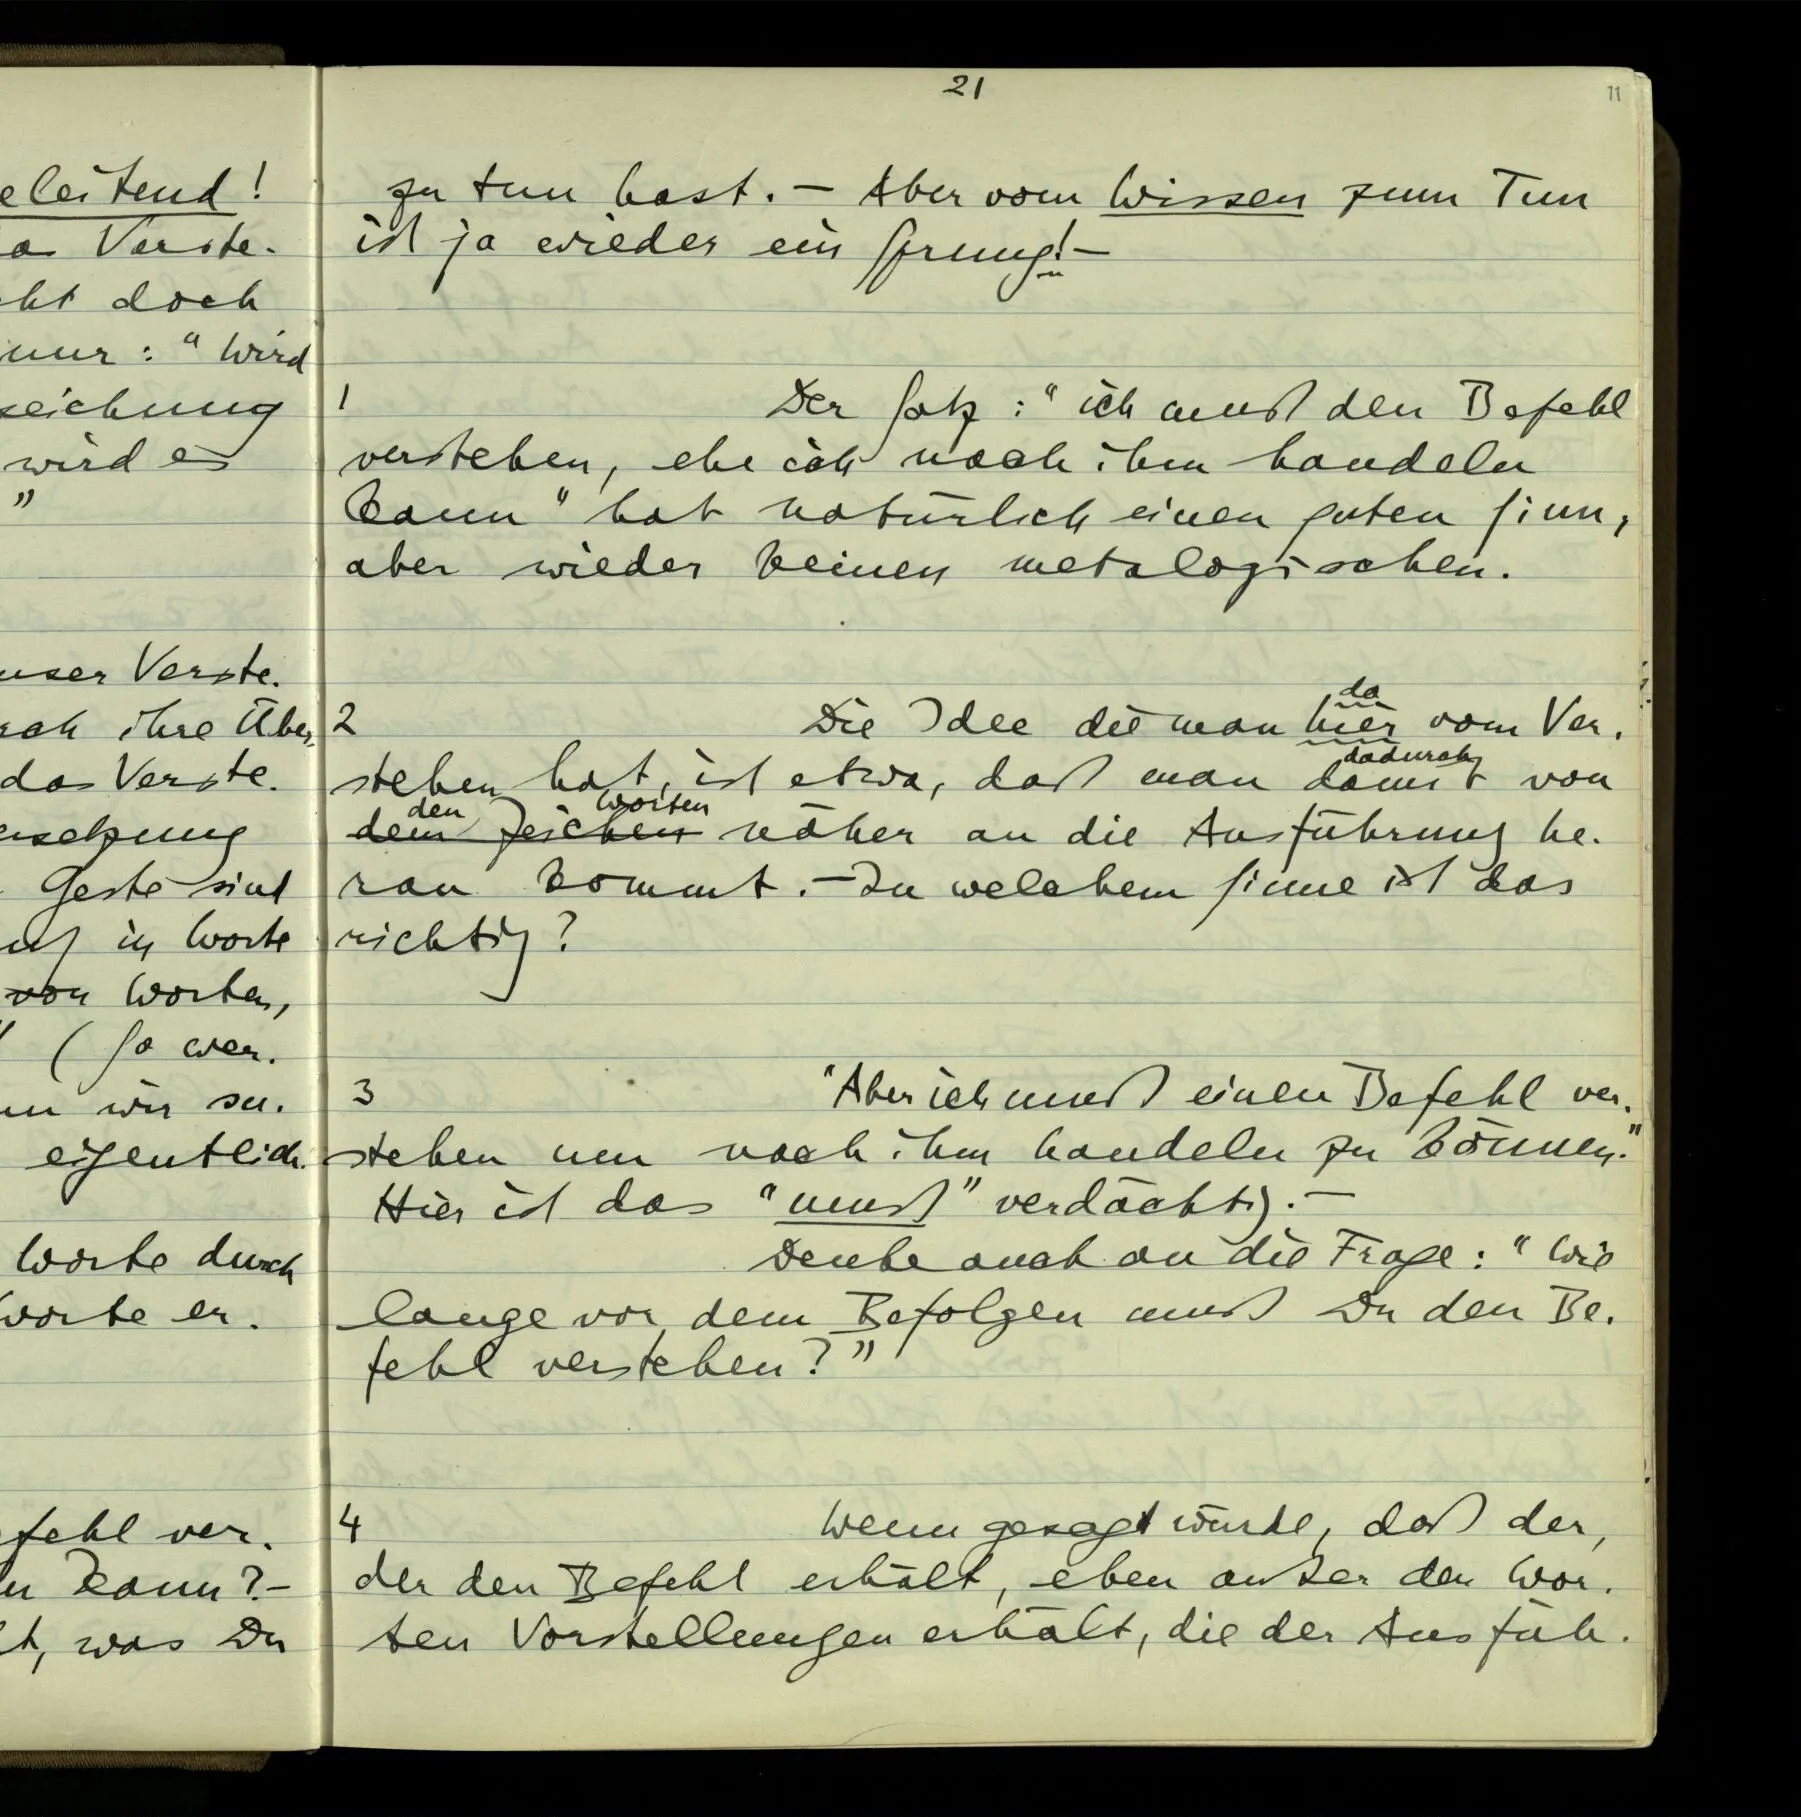 eleitend!
as Verste-
ht doch
nur: " Wird
zeichnung
wird es
"
nser Verste-
rch ihre Über-
das Verste-
ersetzung
Geste sind
in Worte
von Worten,
" (So wer-
nn wir su-
eigentlich
Worte durch
Worte er-
fehl ver-
n kann? –
t, was Du
21
11
zu tun hast. – Aber vom Wissen zum Tun
ist ja wieder ein Sprung! –
1 Der Satz: "ich muß den Befehl
verstehen, ehe ich nach ihm handeln
kann" hat natürlich einen guten Sinn,
aber wieder keinen metalogischen.
da
2 Die Idee die man hier vom Ver-
dadurch
stehen hat, ist etwa, daß man damit von
den Worten
dem Zeichen näher an die Ausführung he-
ran kommt. – In welchem Sinne ist das
richtig?
3 "Aber ich muß einen Befehl ver-
stehen um nach ihm handeln zu können."
Hier ist das "muß" verdächtig. –
Denke auch an die Frage: "Wie
lange vor dem Befolgen mußt Du den Be-
fehl verstehen?"
4 Wenn gesagt würde, daß der,
der den Befehl erhält, eben außer den Wor-
ten Vorstellungen erhält, die der Ausfüh-